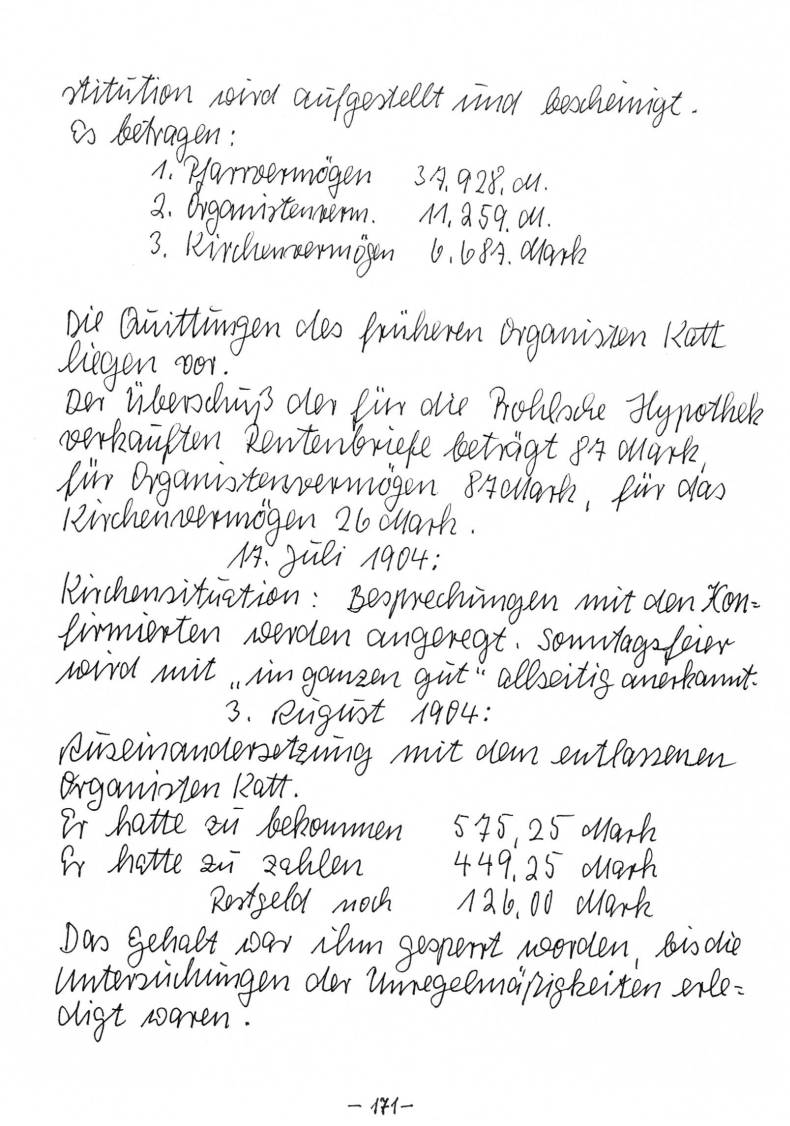 stitution wird aufgestellt und bescheinigt.
Es betragen:
1. Pfarrvermögen 37.928. M.
2. Organistenverm. 11.259. M.
3. Kirchenvermögen 6.687. Mark
Die Quittungen des früheren Organisten Katt
liegen vor.
Der Überschuß der für die Prohlsche Hypothek
verkauften Rentenbriefe beträgt 87 Mark,
für Organistenvermögen 87 Mark, für das
Kirchenvermögen 26 Mark.
17. Juli 1904:
Kirchensituation: Besprechungen mit den Kon=
firmierten werden angeregt. Sonntagsfeier
wird mit „im ganzen gut“ allseitig anerkannt.
3. August 1904:
Auseinandersetzung mit dem entlassenen
Organisten Katt.
Er hatte zu bekommen 575,25 Mark
Er hatte zu zahlen 449,25 Mark
Restgeld noch 126,00 Mark
Das Gehalt war ihm gesperrt worden, bis die
Untersuchungen der Unregelmäßigkeiten erle=
digt waren.
- 171 -